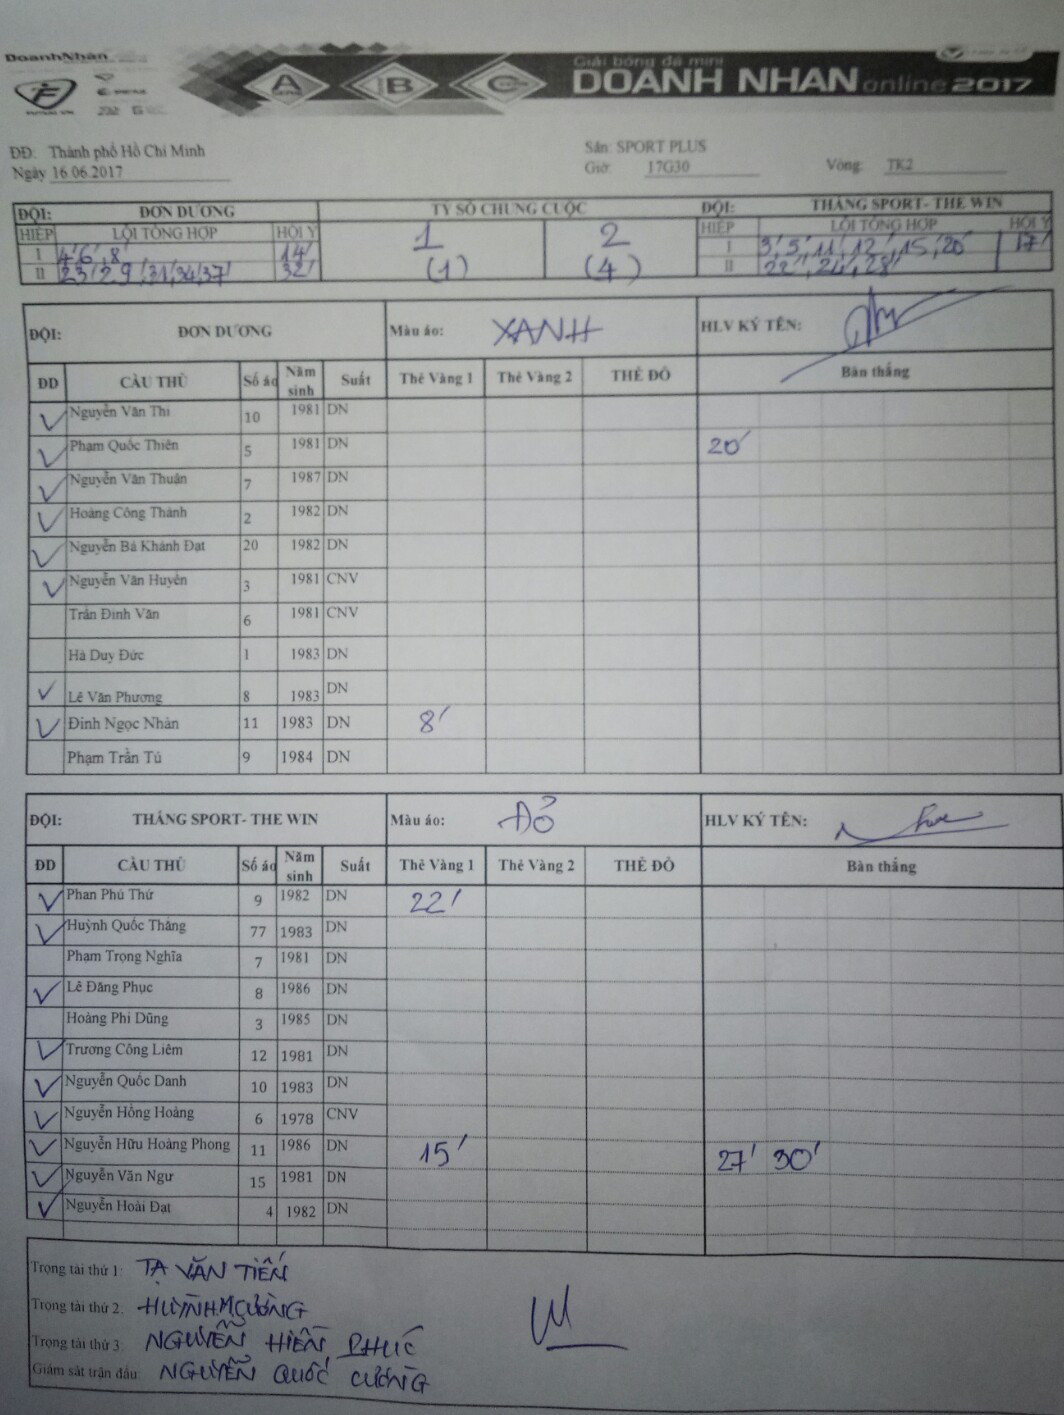 DoanhNhân
A B C
Giải bóng đá mini
DOANH NHAN online 2017
ĐĐ: Thành phố Hồ Chí Minh Sân: SPORT PLUS
Ngày 16.06.2017 Giờ: 17G30 Vòng: TK2
ĐỘI: ĐƠN DƯƠNG TỶ SỐ CHUNG CUỘC ĐỘI: THẮNG SPORT- THE WIN
HIỆP LỖI TỔNG HỢP HỘI Ý 1 2 HIỆP LỖI TỔNG HỢP HỘI Ý
I 4' 6', 8' 14' I 3', 5', 11', 12', 15', 20' 17'
II 23' 29', 31', 34', 37' 32' (1) (4) II 22', 24', 28'
ĐỘI: ĐƠN DƯƠNG Màu áo: XANH HLV KÝ TÊN:
ĐD CẦU THỦ Số áo Năm sinh Suất Thẻ Vàng 1 Thẻ Vàng 2 THẺ ĐỎ Bàn thắng
Nguyễn Văn Thi 10 1981 DN
Phạm Quốc Thiên 5 1981 DN 20'
Nguyễn Văn Thuận 7 1987 DN
Hoàng Công Thành 2 1982 DN
Nguyễn Bá Khánh Đạt 20 1982 DN
Nguyễn Văn Huyền 3 1981 CNV
Trần Đình Văn 6 1981 CNV
Hà Duy Đức 1 1983 DN
Lê Văn Phương 8 1983 DN
Đinh Ngọc Nhân 11 1983 DN 8'
Phạm Trần Tú 9 1984 DN
ĐỘI: THẮNG SPORT- THE WIN Màu áo: ĐỎ HLV KÝ TÊN:
ĐD CẦU THỦ Số áo Năm sinh Suất Thẻ Vàng 1 Thẻ Vàng 2 THẺ ĐỎ Bàn thắng
Phan Phú Thứ 9 1982 DN 22'
Huỳnh Quốc Thắng 77 1983 DN
Phạm Trọng Nghĩa 7 1981 DN
Lê Đăng Phục 8 1986 DN
Hoàng Phi Dũng 3 1985 DN
Trương Công Liêm 12 1981 DN
Nguyễn Quốc Danh 10 1983 DN
Nguyễn Hồng Hoàng 6 1978 CNV
Nguyễn Hữu Hoàng Phong 11 1986 DN 15' 27' 30'
Nguyễn Văn Ngư 15 1981 DN
Nguyễn Hoài Đạt 4 1982 DN
Trọng tài thứ 1: TẠ VĂN TIẾN
Trọng tài thứ 2: HUỲNH M CƯỜNG
Trọng tài thứ 3: NGUYỄN HIỀN PHÚC
Giám sát trận đấu: NGUYỄN QUỐC CƯỜNG